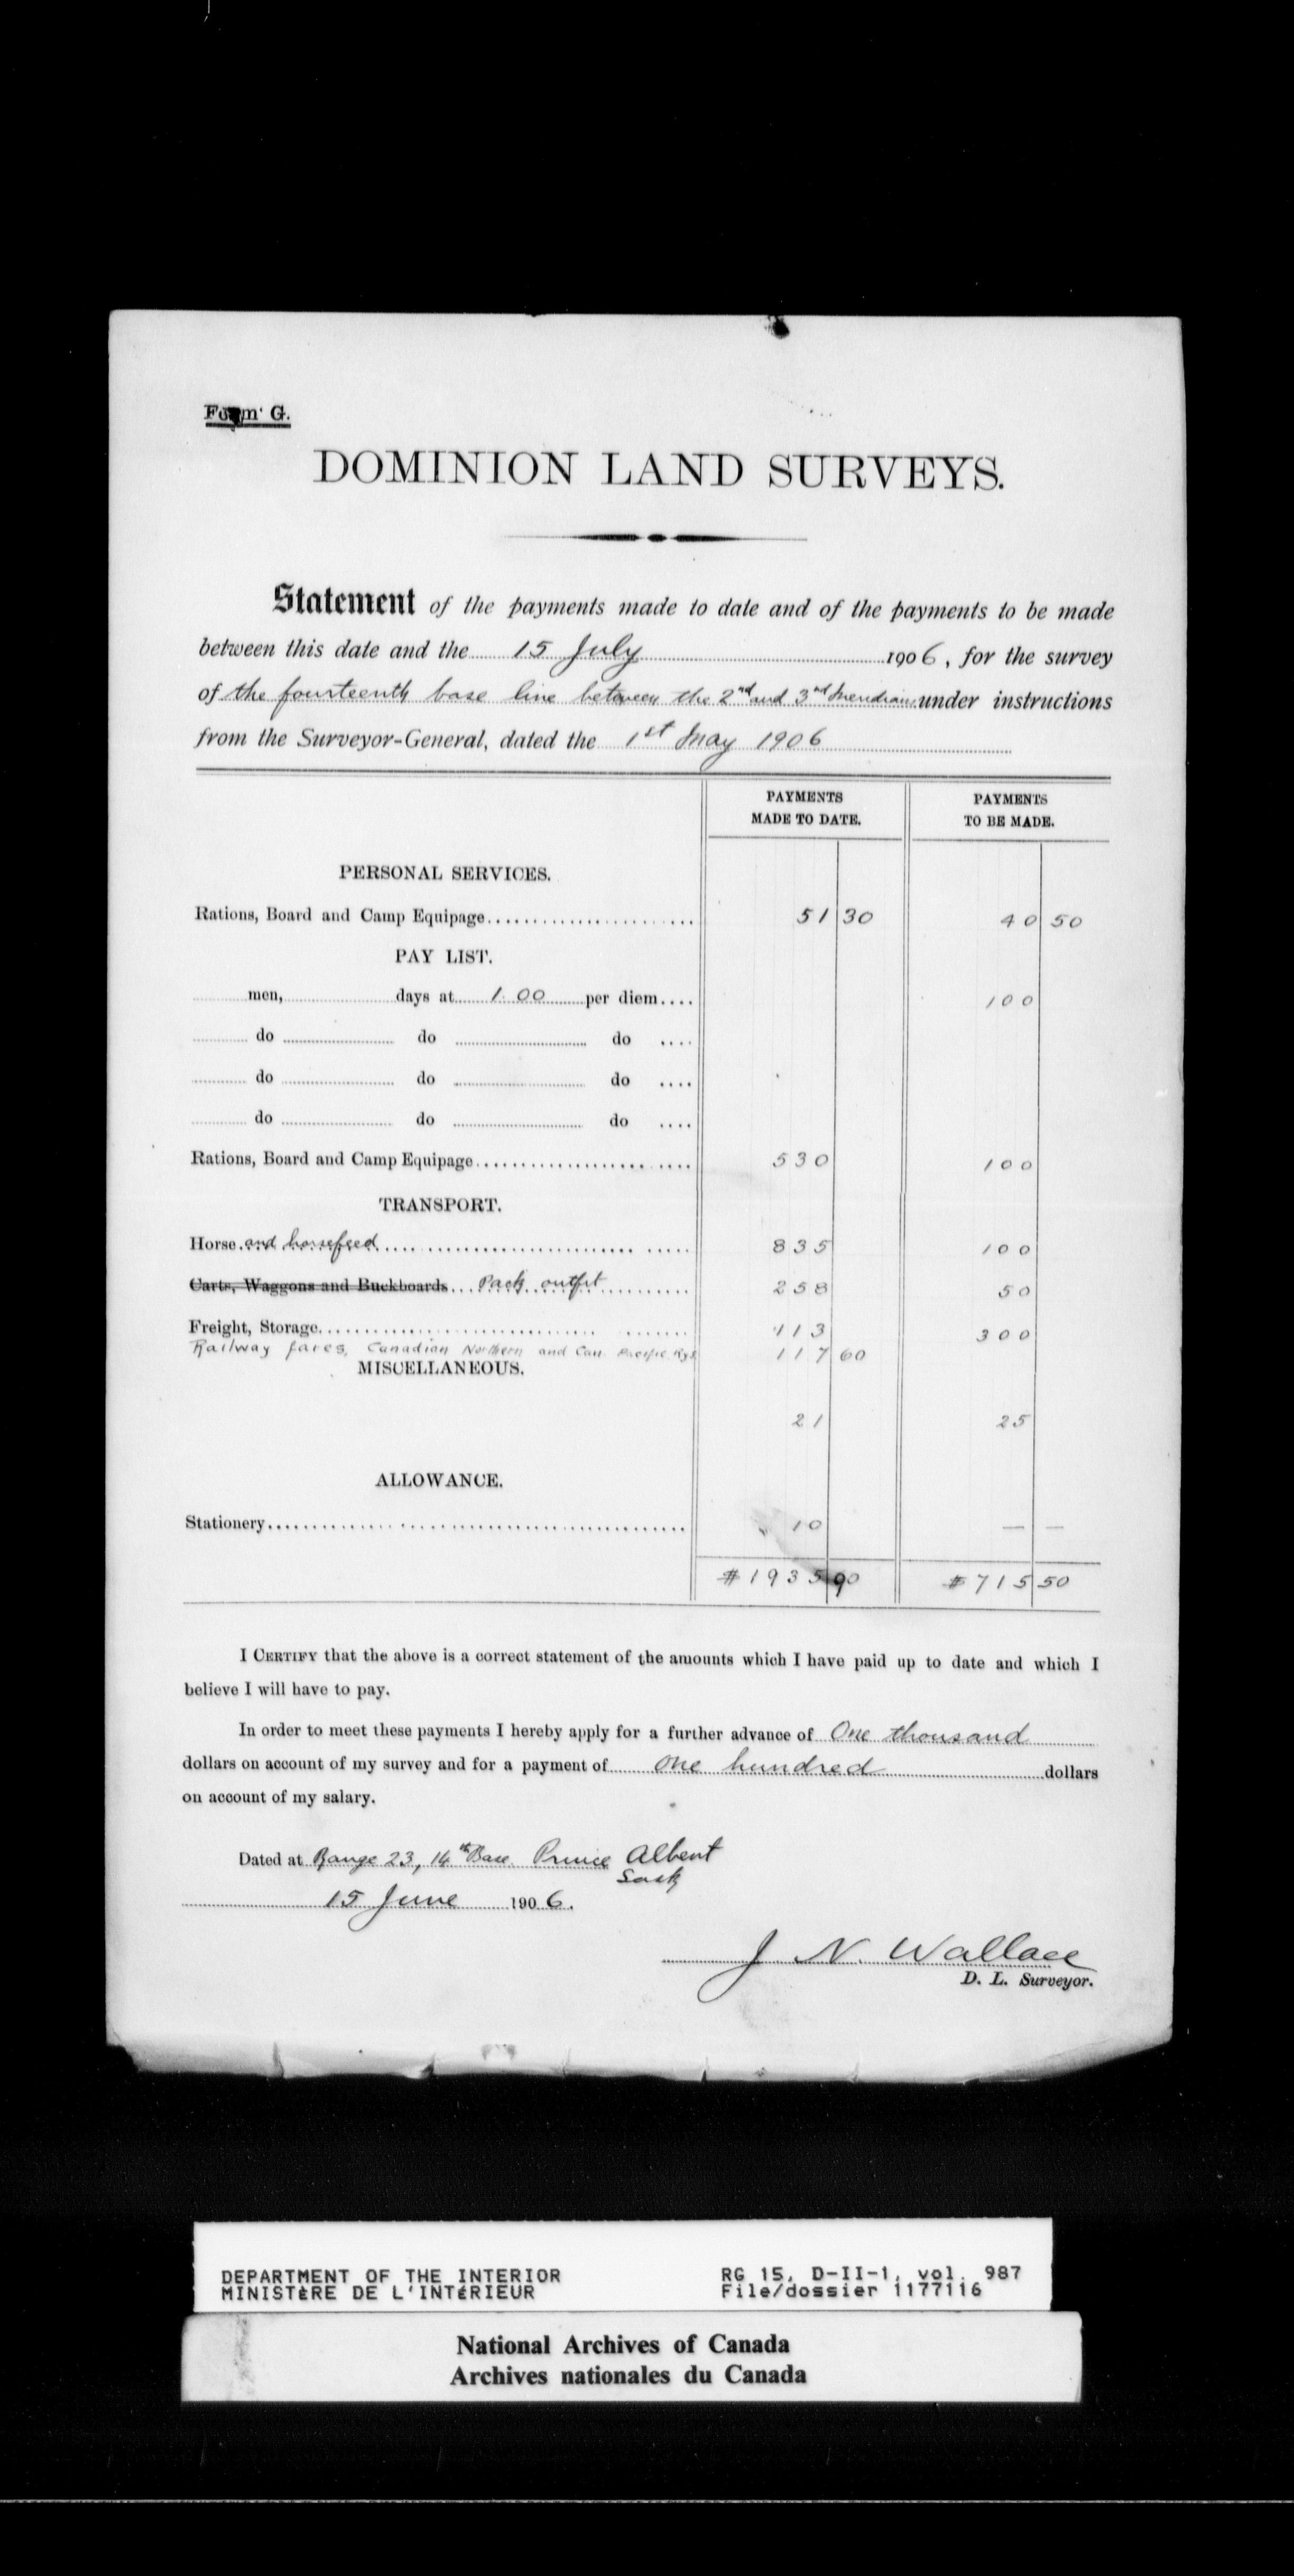 Form G.
DOMINION LAND SURVEYS.
Statement of the payments made to date and of the payments to be made
between this date and the 15 July 1906, for the survey
of the fourteenth base line between the 2nd and 3rd Meridians under instructions
from the Surveyor-General, dated the 1st May 1906
PAYMENTS MADE TO DATE. PAYMENTS TO BE MADE.
PERSONAL SERVICES.
Rations, Board and Camp Equipage 51 30 40 50
PAY LIST.
men, days at 1.00 per diem 100
do do do
do do do
do do do
Rations, Board and Camp Equipage 530 100
TRANSPORT.
Horse and horsefeed 835 100
Carts, Waggons and Buckboards Pack outfit 258 50
Freight, Storage 113 300
Railway fares, Canadian Northern and Can. Pacific Rys 117 60
MISCELLANEOUS.
21 25
ALLOWANCE.
Stationery 10 — —
$1935 90 $715 50
I CERTIFY that the above is a correct statement of the amounts which I have paid up to date and which I
believe I will have to pay.
In order to meet these payments I hereby apply for a further advance of One thousand
dollars on account of my survey and for a payment of one hundred dollars
on account of my salary.
Dated at Range 23, 14th Base Prince Albert
Sask
15 June 1906.
J. N. Wallace
D. L. Surveyor.
DEPARTMENT OF THE INTERIOR RG 15, D-II-1, vol. 987
MINISTÈRE DE L'INTÉRIEUR File/dossier 1177116
National Archives of Canada
Archives nationales du Canada